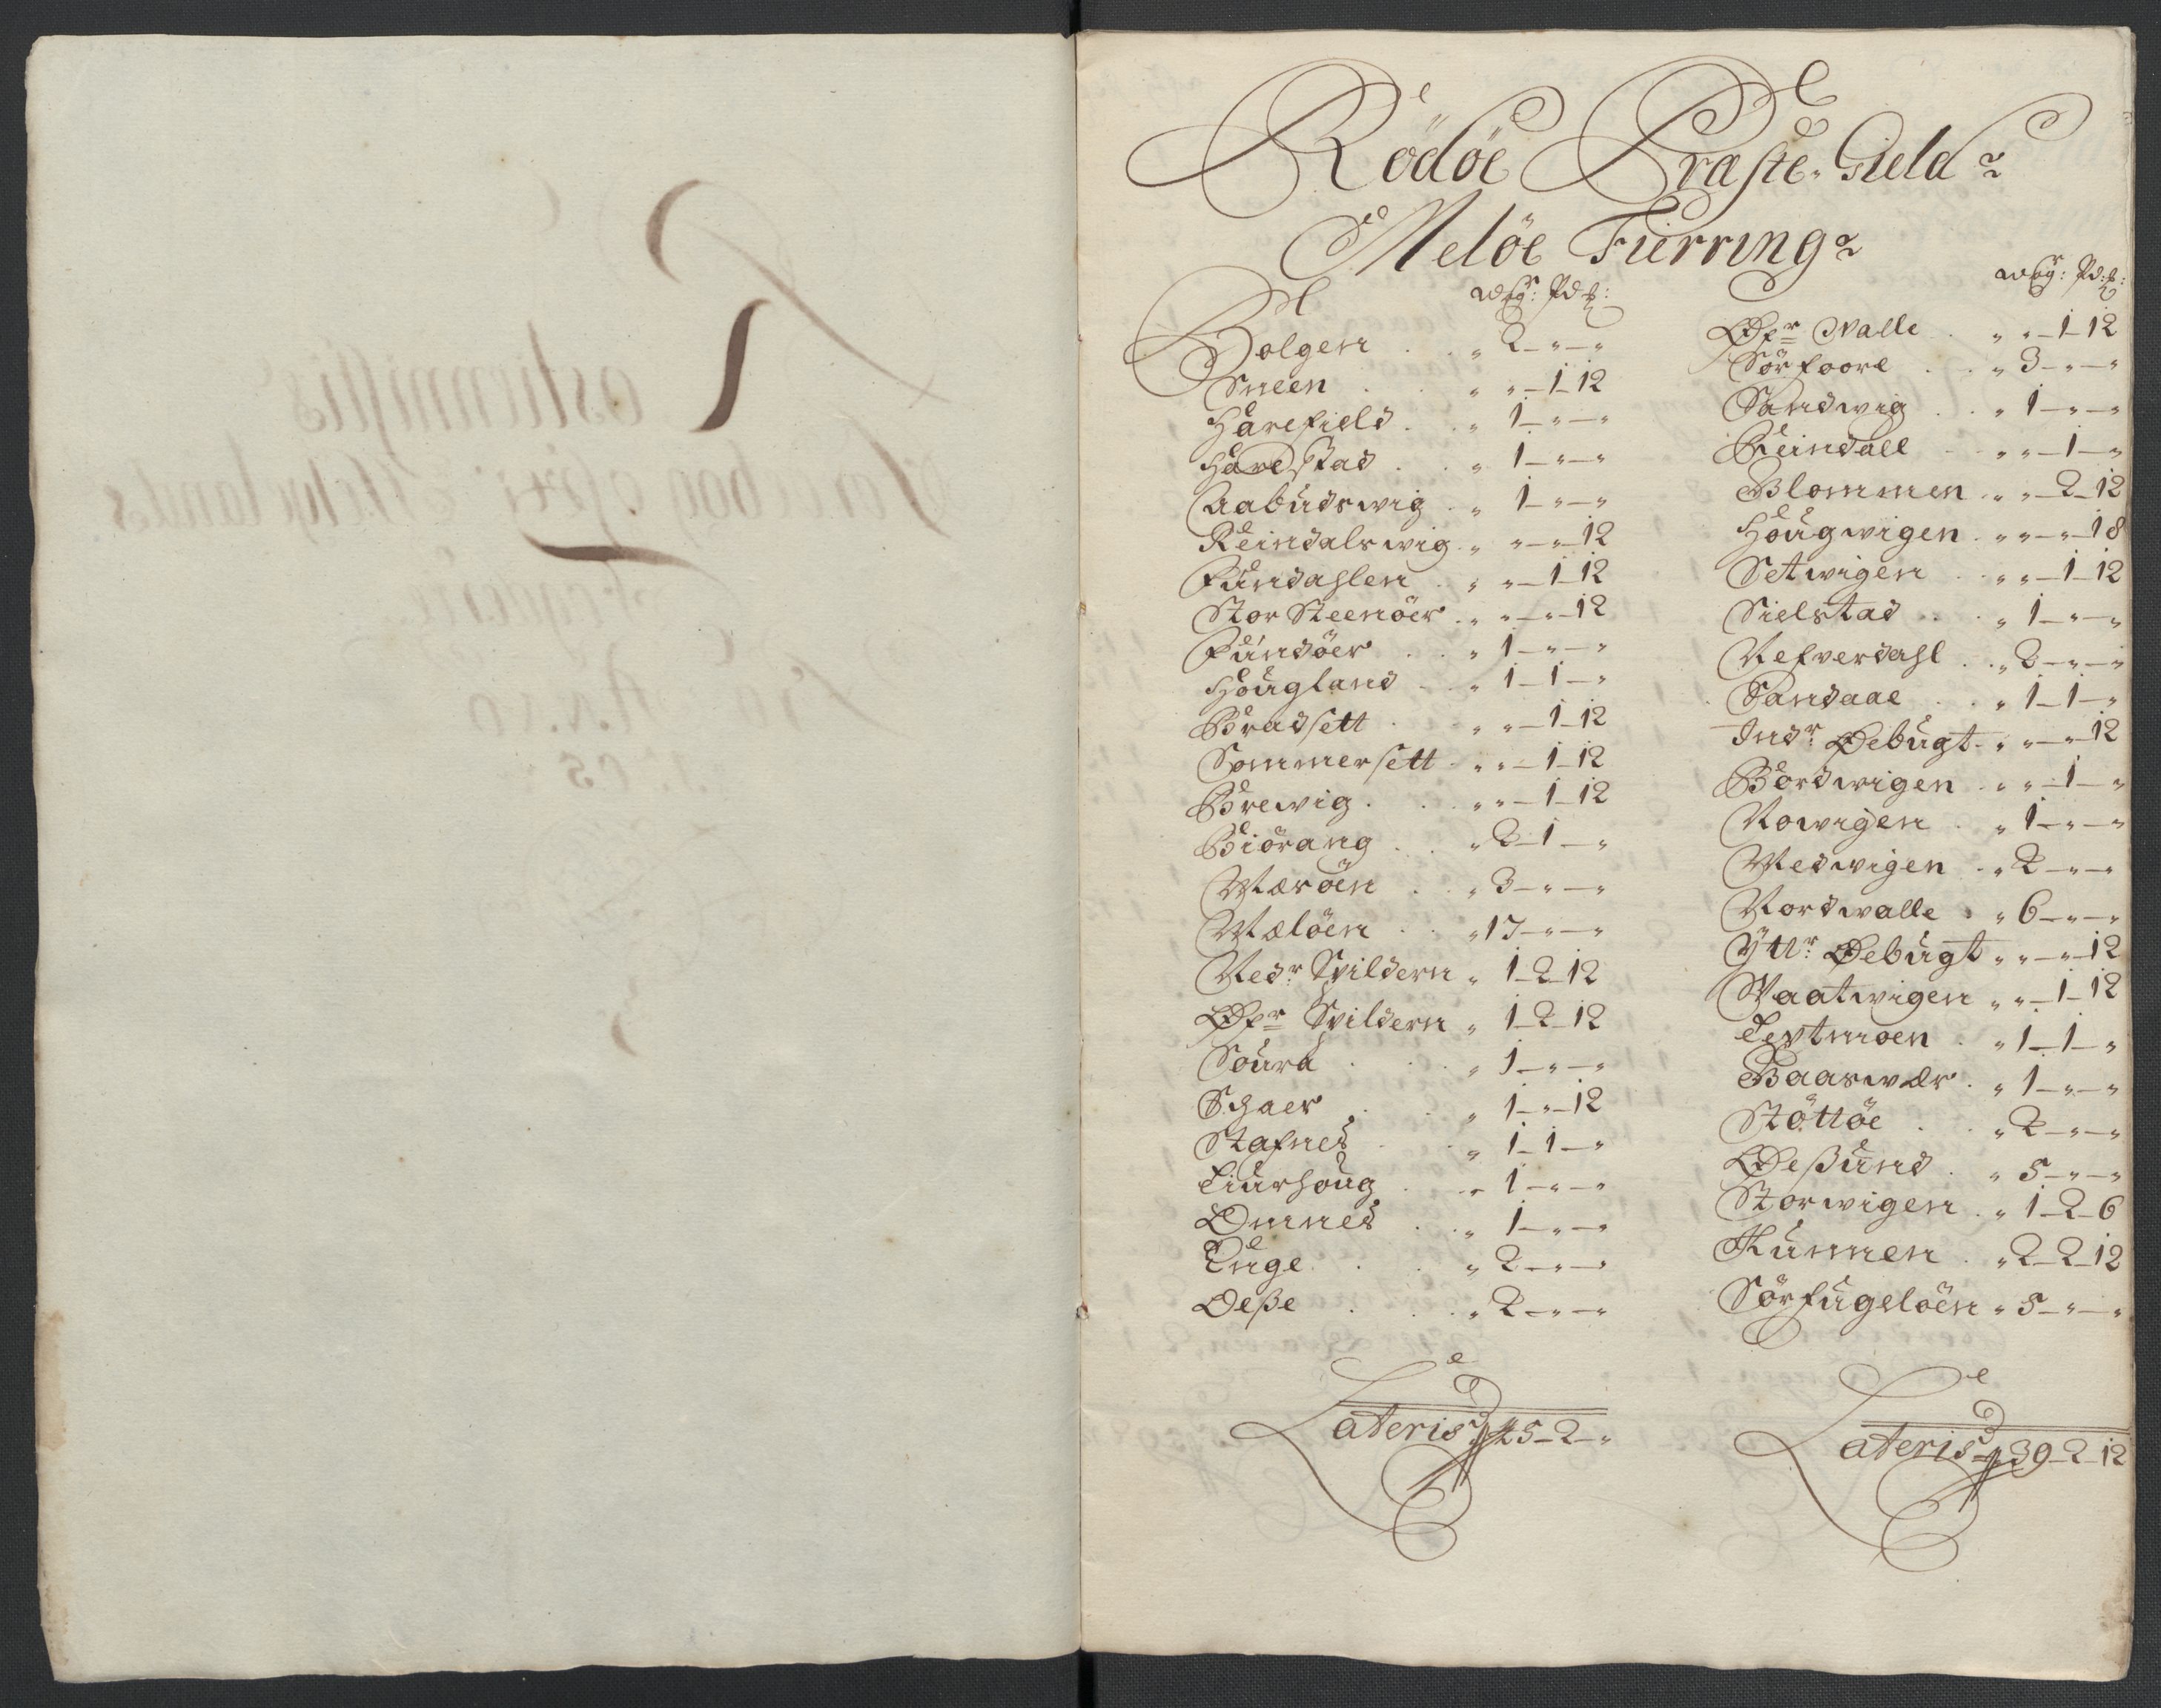 Rödöe Præste-Gield
Melöe Fierring
Wog: Pd: ℔:
Bolgen . . „ 2 - „ - „
Sneen . . „ „ - 1 - 12
Harefield . . „ 1 - „ - „
Harestad . . „ 1 - „ - „
Aabudswig . „ 1 - „ - „
Reindalswig . „ „ - „ - 12
Fundahlen . „ „ - 1 - 12
Stor Steenöer . „ „ - „ - 12
Fundöer . . „ 1 - „ - „
Hougland . . „ 1 - 1 - „
Bradsett . . „ „ - 1 - 12
Sommersett . „ „ - 1 - 12
Brewig . . „ „ - 1 - 12
Biörang . . „ 2 - 1 - „
Mæröen . . „ 3 - „ - „
Mælöen . . „ 17 - „ - „
Nedr Svildern „ 1 - 2 - 12
Øfr Svildern „ 1 - 2 - 12
Soura . . „ 1 - „ - „
Schaer . . „ 1 - „ - 12
Stafnes . . „ 1 - 1 - „
Tiurhoug . . „ 1 - „ - „
Omnes . . „ 1 - „ - „
Enge . . „ 2 - „ - „
Oeße . . „ 2 - „ - „
Lateris 45 - 2 - „
Wog: Pd: ℔:
Øfr Walle . „ „ - 1 - 12
Sörfoore . . „ 3 - „ - „
Sandwig . . „ 1 - „ - „
Reindall . „ „ - 1 - „
Blommen . „ „ - 2 - 12
Hougwigen . „ „ - „ - 18
Setwigen . „ „ - 1 - 12
Sielstad . . „ 1 - „ - „
Nefverdahl . . „ 2 - „ - „
Sandaae . . „ 1 - 1 - „
Indr Øebugt . „ „ - „ - 12
Bordwigen . „ „ - 1 - „
Nowigen . „ 1 - „ - „
Medwigen . „ 2 - „ - „
Nordwalle . „ 6 - „ - „
Yttr Øebugt „ „ - „ - 12
Waatwigen „ „ - 1 - 12
Textmoen . „ 1 - 1 - „
Baaswær . „ 1 - „ - „
Stöttöe . . „ 2 - „ - „
Øeßund . „ 5 - „ - „
Storwigen . „ 1 - 2 - 6
Kunnen . „ 2 - 2 - 12
Sörfugelöen „ 5 - „ - „
Lateris 39 - 2 - 12